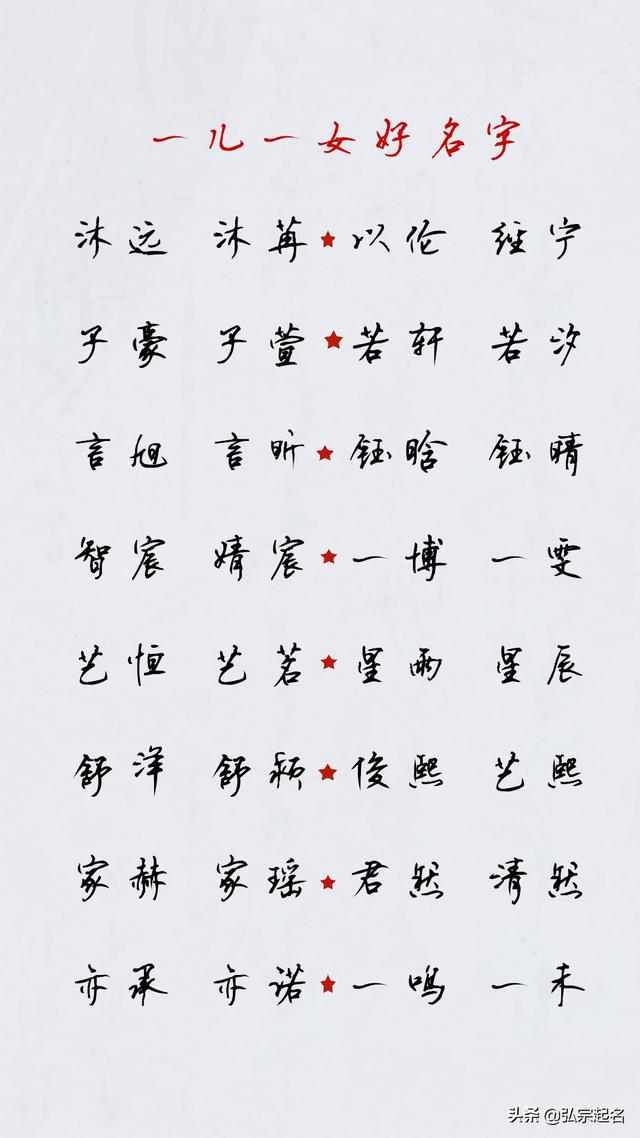 一儿一女好名字
沐远 沐苒★以伦 经宁
子豪 子萱★若轩 若汐
言旭 言昕★钰晗 钰晴
智宸 婧宸★一博 一雯
艺恒 艺茗★星雨 星辰
舒洋 舒颖★俊熙 艺熙
家赫 家瑶★君然 清然
亦承 亦诺★一鸣 一未
头条 @弘宗起名